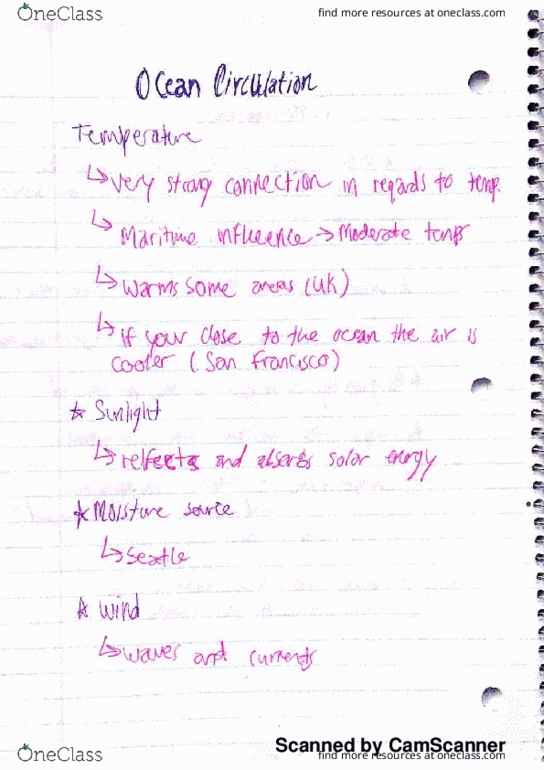 OneClass
find more resources at oneclass.com
Ocean Circulation
Temperature
↳ very strong connection in regards to temp.
↳ Maritime influence → Moderate temps
↳ Warms some areas (UK)
↳ if your close to the ocean the air is
cooler (San Francisco)
☆ Sunlight
↳ relfects and absorbs solar energy
☆ Moisture source
↳ Seatle
☆ Wind
↳ waves and currents
Scanned by CamScanner
OneClass
find more resources at oneclass.com